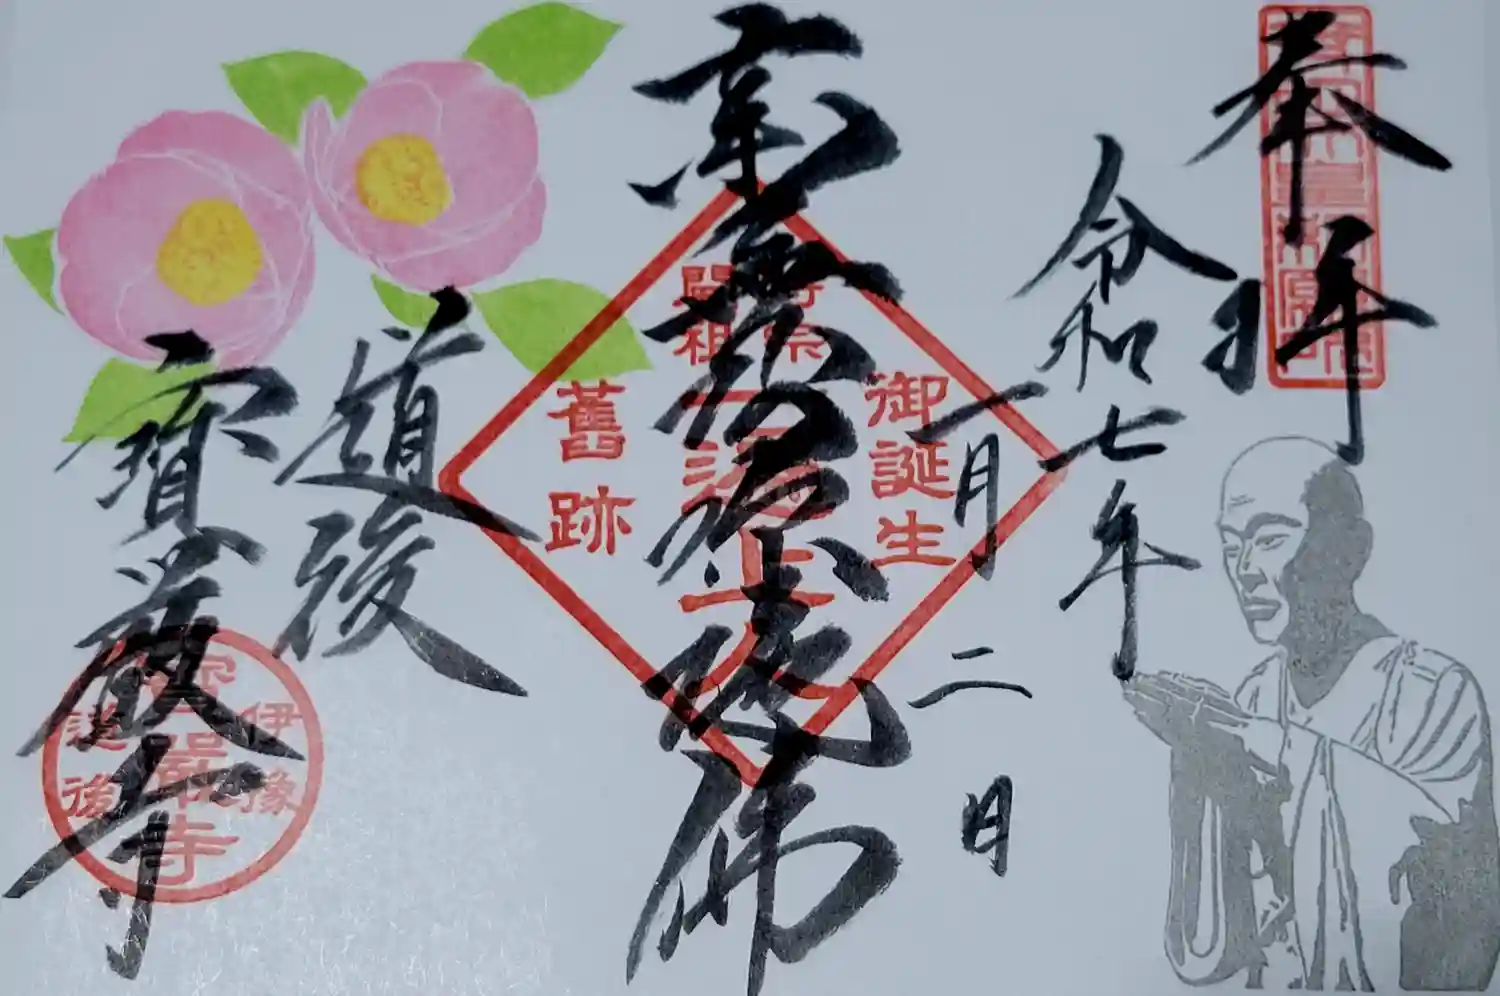 奉拝
令和七年
一月二日
南無阿弥陀佛
御誕生
時宗
開祖
一遍上人
舊跡
道後
寳厳寺
伊豫
寳嚴寺
道後